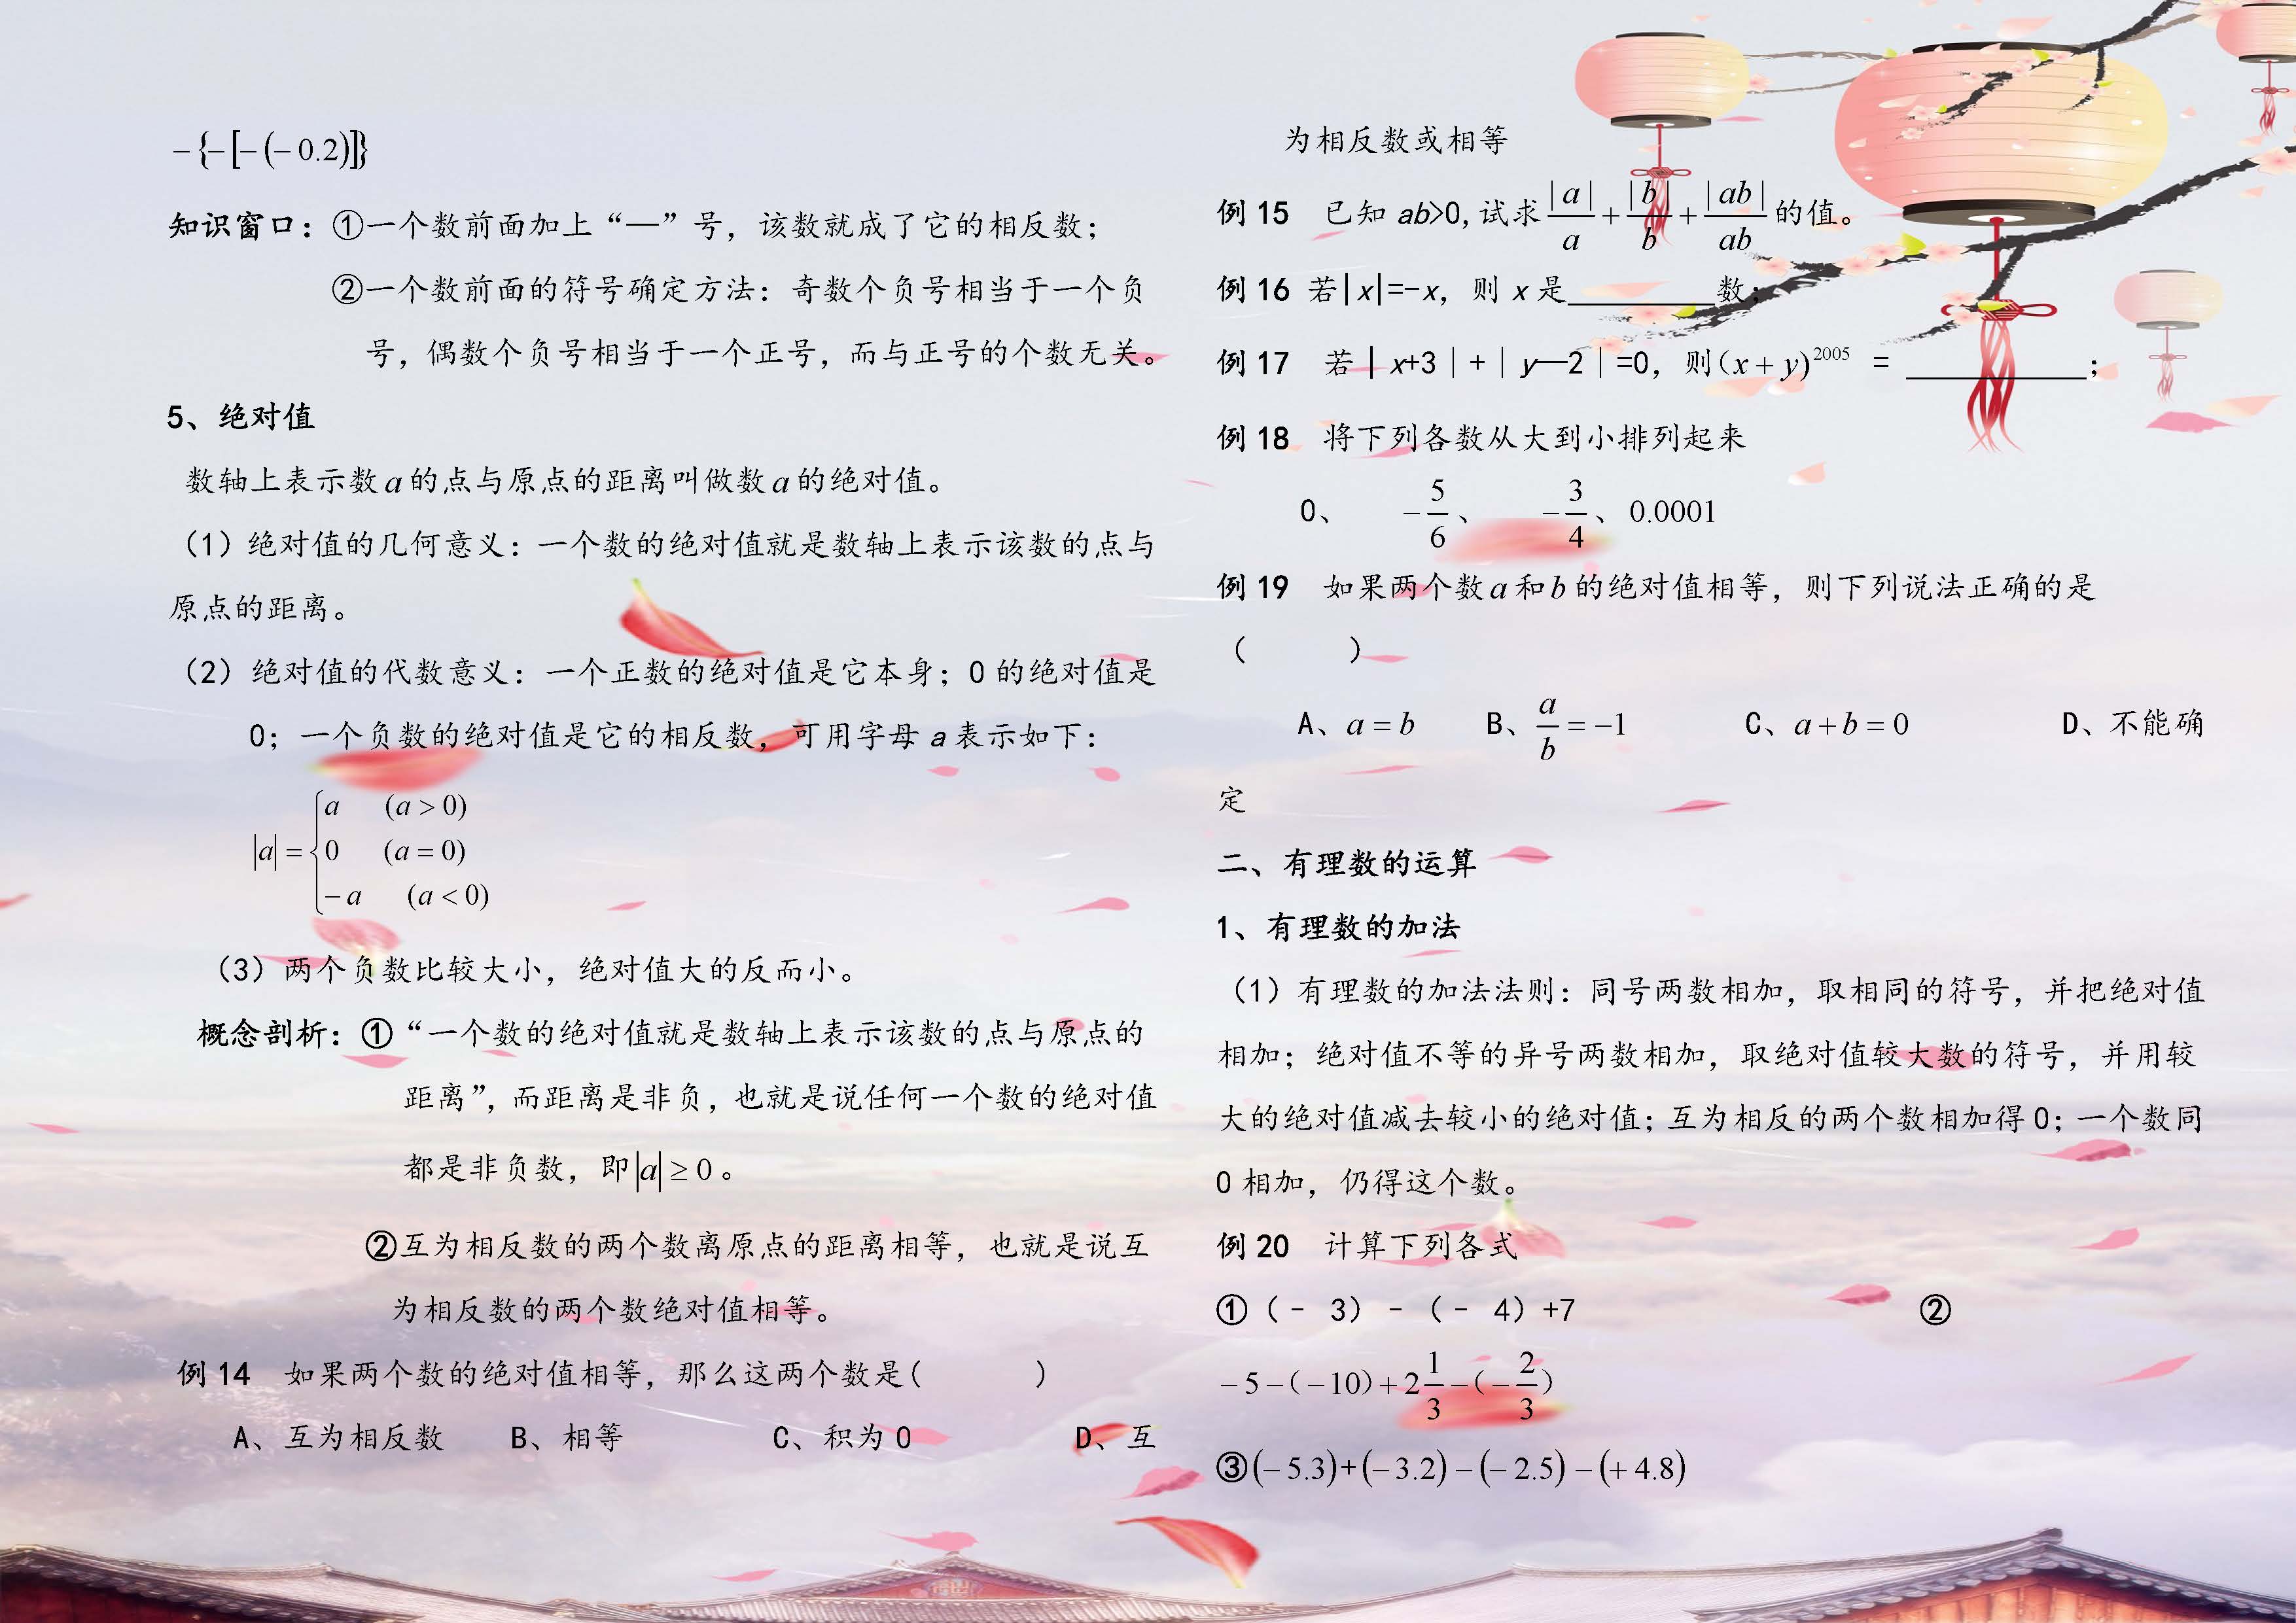 −{−[−(−0.2)]}
知识窗口：①一个数前面加上“—”号，该数就成了它的相反数；
②一个数前面的符号确定方法：奇数个负号相当于一个负
号，偶数个负号相当于一个正号，而与正号的个数无关。
5、绝对值
数轴上表示数a的点与原点的距离叫做数a的绝对值。
（1）绝对值的几何意义：一个数的绝对值就是数轴上表示该数的点与
原点的距离。
（2）绝对值的代数意义：一个正数的绝对值是它本身；0的绝对值是
0；一个负数的绝对值是它的相反数，可用字母a表示如下：
a (a>0)
|a|= { 0 (a=0)
−a (a<0)
（3）两个负数比较大小，绝对值大的反而小。
概念剖析：①“一个数的绝对值就是数轴上表示该数的点与原点的
距离”，而距离是非负，也就是说任何一个数的绝对值
都是非负数，即|a|≥0。
②互为相反数的两个数离原点的距离相等，也就是说互
为相反数的两个数绝对值相等。
例14 如果两个数的绝对值相等，那么这两个数是( )
A、互为相反数 B、相等 C、积为0 D、互
为相反数或相等
例15 已知ab>0,试求|a|/a+|b|/b+|ab|/ab的值。
例16 若|x|=-x，则x是________数；
例17 若｜x+3｜+｜y—2｜=0，则(x+y)²⁰⁰⁵ = __________；
例18 将下列各数从大到小排列起来
0、 −5/6、 −3/4、0.0001
例19 如果两个数a和b的绝对值相等，则下列说法正确的是
（ ）
A、a=b B、a/b=−1 C、a+b=0 D、不能确
定
二、有理数的运算
1、有理数的加法
（1）有理数的加法法则：同号两数相加，取相同的符号，并把绝对值
相加；绝对值不等的异号两数相加，取绝对值较大数的符号，并用较
大的绝对值减去较小的绝对值；互为相反的两个数相加得0；一个数同
0相加，仍得这个数。
例20 计算下列各式
①（– 3）–（– 4）+7 ②
−5−(−10)+2 1/3−(−2/3)
③(−5.3)+(−3.2)−(−2.5)−(+4.8)